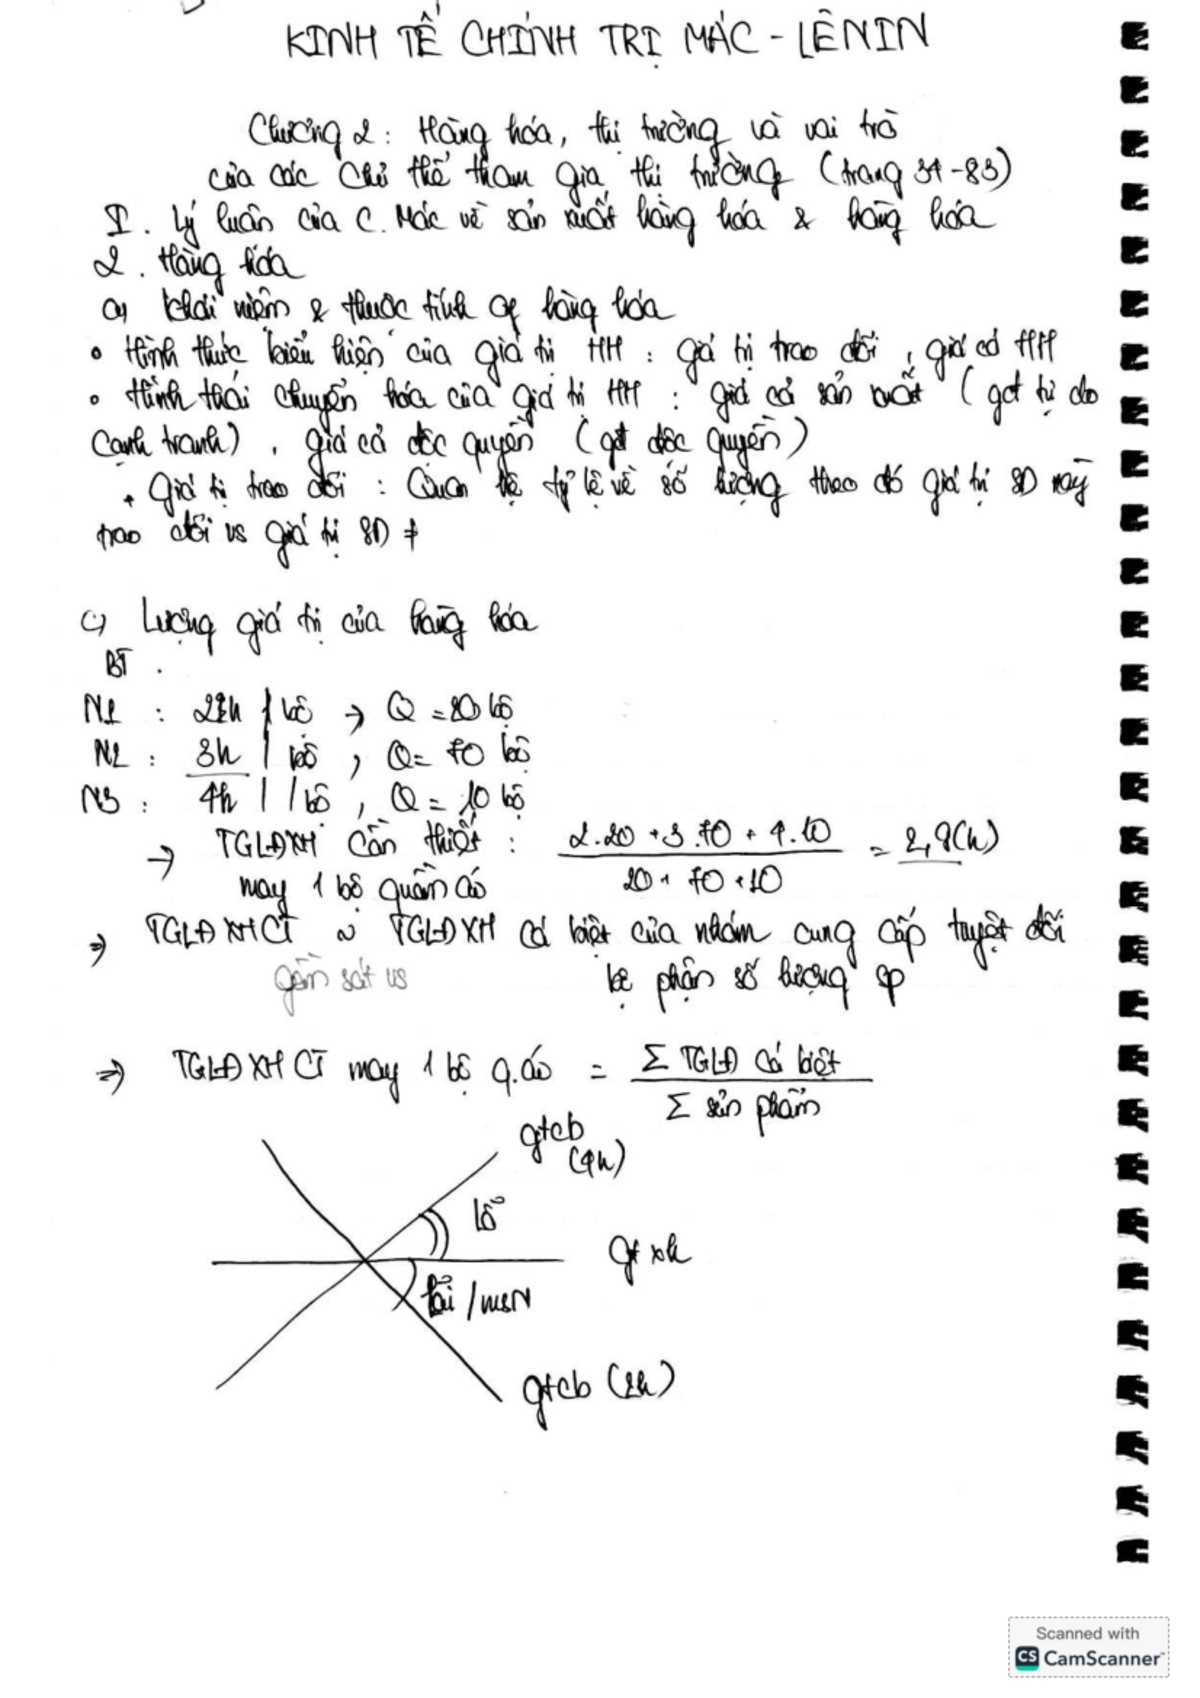 KINH TẾ CHÍNH TRỊ MÁC - LÊNIN
Chương 2: Hàng hóa, thị trường và vai trò
của các chủ thể tham gia thị trường (trang 34-83)
I. Lý luận của C. Mác về sản xuất hàng hóa & hàng hóa
2. Hàng hóa
a) Khái niệm & thuộc tính of hàng hóa
• Hình thức biểu hiện của giá trị HH: giá trị trao đổi, giá cả HH
• Hình thái chuyển hóa của giá trị HH: giá cả sản xuất (gđ tự do
cạnh tranh), giá cả độc quyền (gđ độc quyền)
+ Giá trị trao đổi: Quan hệ tỷ lệ về số lượng theo đó giá trị SD này
trao đổi vs giá trị SD ≠
c) Lượng giá trị của hàng hóa
BT.
N1: 2h / bộ → Q = 20 bộ
N2: 3h / bộ, Q = 70 bộ
N3: 4h / bộ, Q = 10 bộ
→ TGLĐXH cần thiết: (2.20 + 3.70 + 4.10) / (20 + 70 + 10) = 2,9(h)
may 1 bộ quần áo
⇒ TGLĐXHCT ~ TGLĐXH cá biệt của nhóm cung cấp tuyệt đối
gần sát vs bộ phận số lượng sp
⇒ TGLĐXHCT may 1 bộ q.áo = Σ TGLĐ cá biệt / Σ sản phẩm
gtcb
(4h)
lỗ
gt xh
lãi / msN
gtcb (2h)
Scanned with
CS CamScanner